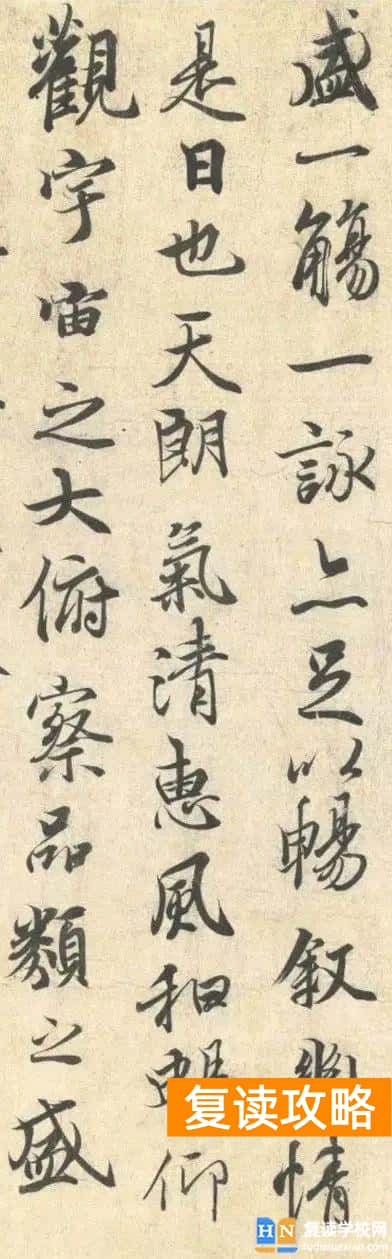 盛一觴一詠亦足以暢叙幽情
是日也天朗氣清惠風和暢仰
觀宇宙之大俯察品類之盛
复读攻略
HN 复读学校网